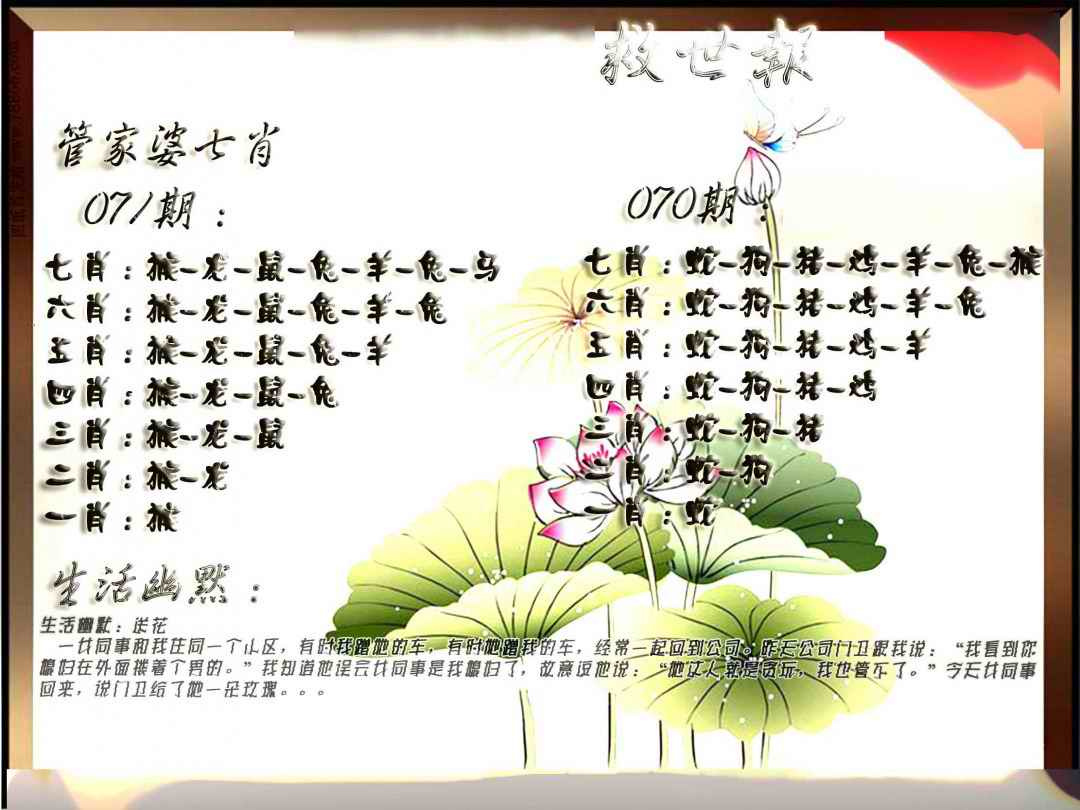 救世報
管家婆七肖
071期：
七肖：猴-龙-鼠-兔-羊-兔-马
六肖：猴-龙-鼠-兔-羊-兔
五肖：猴-龙-鼠-兔-羊
四肖：猴-龙-鼠-兔
三肖：猴-龙-鼠
二肖：猴-龙
一肖：猴
070期：
七肖：蛇-狗-猪-鸡-羊-兔-猴
六肖：蛇-狗-猪-鸡-羊-兔
五肖：蛇-狗-猪-鸡-羊
四肖：蛇-狗-猪-鸡
三肖：蛇-狗-猪
二肖：蛇-狗
一肖：蛇
生活幽默：
生活幽默：送花
一女同事和我在同一个小区，有时我蹭她的车，有时她蹭我的车，经常一起回到公司。昨天公司门卫跟我说：“我看到你
媳妇在外面搂着个男的。”我知道他误会女同事是我媳妇了，故意逗他说：“她这人就是贪玩，我也管不了。”今天女同事
回来，说门卫给了她一朵玫瑰。。。